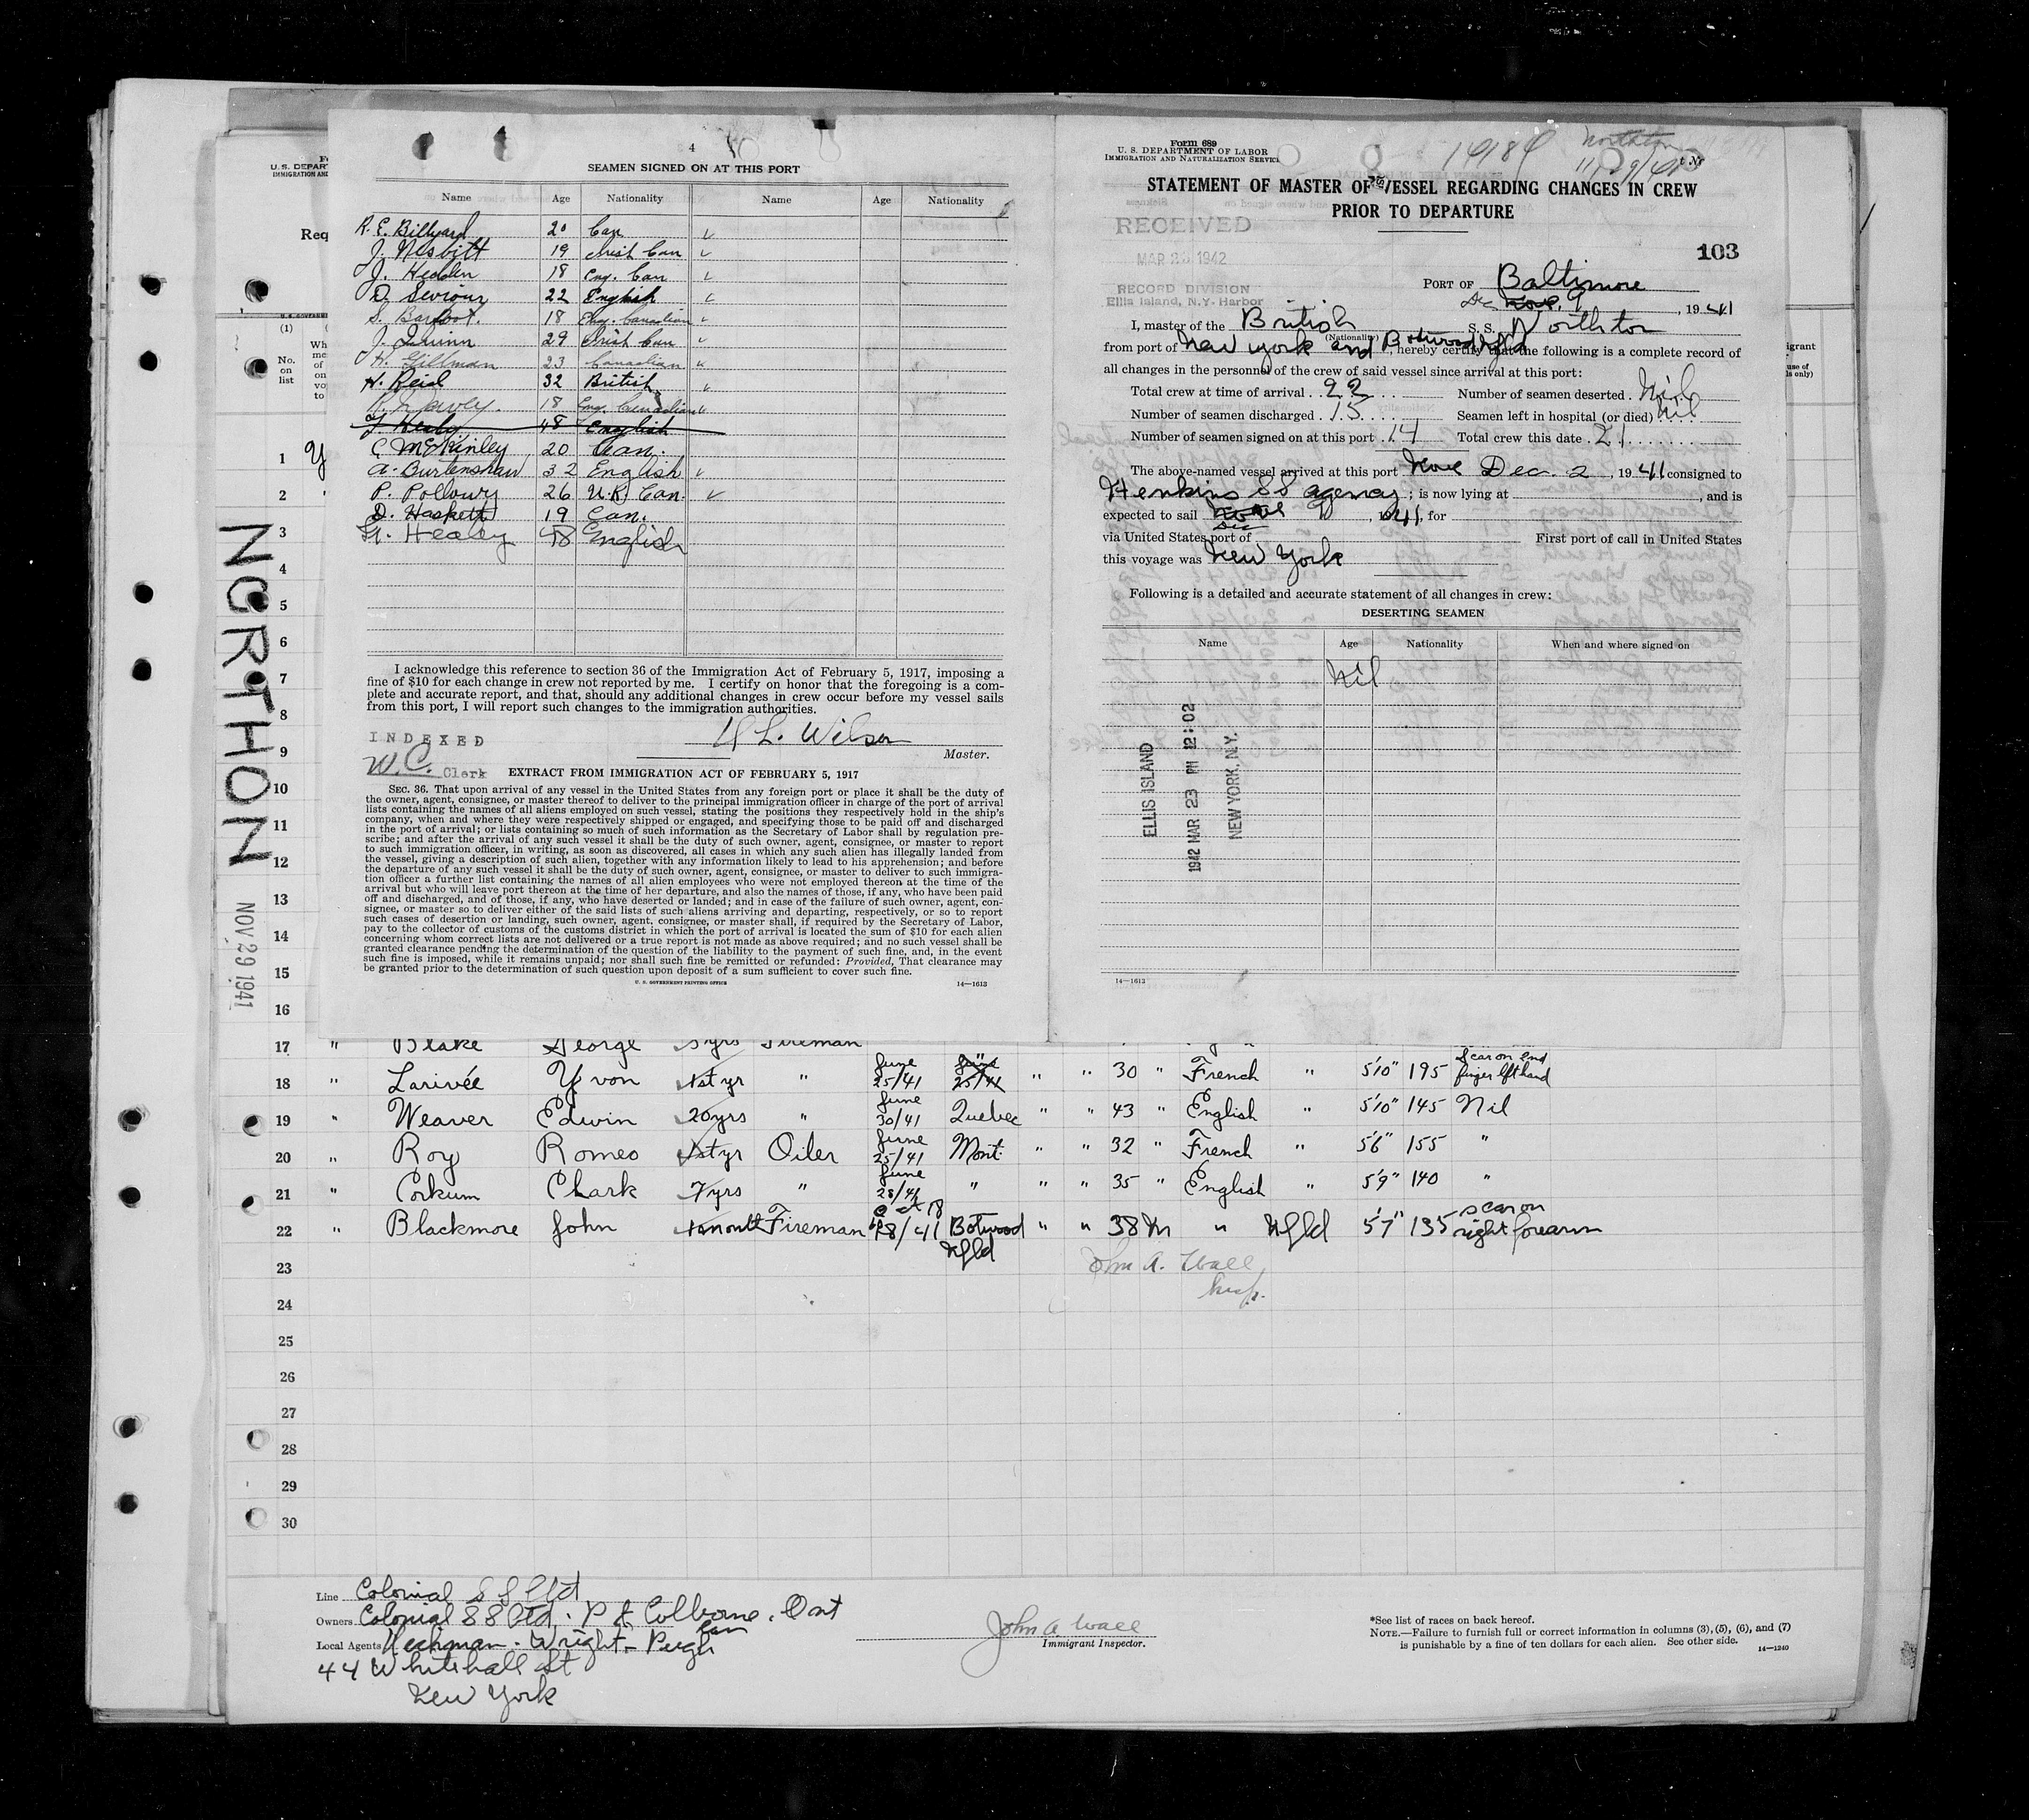 4
SEAMEN SIGNED ON AT THIS PORT
Name Age Nationality Name Age Nationality
R. E. Billyard 20 Can
J. Nesbitt 19 Irish Can
J. Hedden 18 Eng. Can
D. Seviour 22 English
S. Barfoot. 18 Eng. Canadian
J. Quinn 29 Irish Can
H. Gillman 23 Canadian
H. Reid 32 British
18 Eng. Canadian
Healy 48 English
C McKinley 20 Can.
A. Burtenshaw 32 English
P. Pollowy 26 U.K. Can.
D. Haskett 19 Can.
Healey 48 English
I acknowledge this reference to section 36 of the Immigration Act of February 5, 1917, imposing a
fine of $10 for each change in crew not reported by me. I certify on honor that the foregoing is a com-
plete and accurate report, and that, should any additional changes in crew occur before my vessel sails
from this port, I will report such changes to the immigration authorities.
L. Wilson
Master.
INDEXED
W.C. Clerk
EXTRACT FROM IMMIGRATION ACT OF FEBRUARY 5, 1917
SEC. 36. That upon arrival of any vessel in the United States from any foreign port or place it shall be the duty of
the owner, agent, consignee, or master thereof to deliver to the principal immigration officer in charge of the port of arrival
lists containing the names of all aliens employed on such vessel, stating the positions they respectively hold in the ship's
company, when and where they were respectively shipped or engaged, and specifying those to be paid off and discharged
in the port of arrival; or lists containing so much of such information as the Secretary of Labor shall by regulation pre-
scribe; and after the arrival of any such vessel it shall be the duty of such owner, agent, consignee, or master to report
to such immigration officer, in writing, as soon as discovered, all cases in which any such alien has illegally landed from
the vessel, giving a description of such alien, together with any information likely to lead to his apprehension; and before
the departure of any such vessel it shall be the duty of such owner, agent, consignee, or master to deliver to such immigra-
tion officer a further list containing the names of all alien employees who were not employed thereon at the time of the
arrival but who will leave port thereon at the time of her departure, and also the names of those, if any, who have been paid
off and discharged, and of those, if any, who have deserted or landed; and in case of the failure of such owner, agent, con-
signee, or master so to deliver either of the said lists of such aliens arriving and departing, respectively, or so to report
such cases of desertion or landing, such owner, agent, consignee, or master shall, if required by the Secretary of Labor,
pay to the collector of customs of the customs district in which the port of arrival is located the sum of $10 for each alien
concerning whom correct lists are not delivered or a true report is not made as above required; and no such vessel shall be
granted clearance pending the determination of the question of the liability to the payment of such fine, and, in the event
such fine is imposed, while it remains unpaid; nor shall such fine be remitted or refunded: Provided, That clearance may
be granted prior to the determination of such question upon deposit of a sum sufficient to cover such fine.
U. S. GOVERNMENT PRINTING OFFICE 14—1613
Form 689
U. S. DEPARTMENT OF LABOR
IMMIGRATION AND NATURALIZATION SERVICE
Northton
11/29/41
STATEMENT OF MASTER OF VESSEL REGARDING CHANGES IN CREW
PRIOR TO DEPARTURE
RECEIVED
MAR 23 1942
RECORD DIVISION
Ellis Island, N.Y. Harbor
103
PORT OF Baltimore
Dec Nov. 9, 1941
I, master of the British S. S. Northton
(Nationality)
from port of New York and Botwood Nfld, hereby certify that the following is a complete record of
all changes in the personnel of the crew of said vessel since arrival at this port:
Total crew at time of arrival 22 Number of seamen deserted Nil
Number of seamen discharged 15 Seamen left in hospital (or died) Nil
Number of seamen signed on at this port 14 Total crew this date 21
The above-named vessel arrived at this port Nov Dec. 2, 1941 consigned to
Henkins SS agency; is now lying at , and is
expected to sail Nov Dec 9, 1941, for
via United States port of First port of call in United States
this voyage was New York
Following is a detailed and accurate statement of all changes in crew:
DESERTING SEAMEN
Name Age Nationality When and where signed on
Nil
ELLIS ISLAND
1942 MAR 23 PM 12:02
NEW YORK, N.Y.
14—1613
NORTHON
NOV 29 1941
U.S. DEPAR
IMMIGRATION AND
Req
(1)
No.
on
list
1
2
3
4
5
6
7
8
9
10
11
12
13
14
15
16
17 " Blake George 5yrs Fireman
18 " Larivée Yvon 1st yr " June 25/41 June 25/41 " " 30 " French " 5'10" 195 scar on end finger left hand
19 " Weaver Edwin 20yrs " June 30/41 Quebec " " 43 " English " 5'10" 145 Nil
20 " Roy Romeo 1st yr Oiler June 25/41 Mont. " " 32 " French " 5'6" 155 "
21 " Corkum Clark 7yrs " June 28/41 " " " 35 " English " 5'9" 140 "
22 " Blackmore John Fireman Oct 18 /41 Botwood Nfld " " 38 M " Nfld 5'7" 135 scar on right forearm
23 John A. Wall
24 Insp.
25
26
27
28
29
30
Line Colonial S S Ltd
Owners Colonial SS Ltd. Pt Colborne. Ont
Can
Local Agents Heckman. Wright Pugh
44 Whitehall St
New York
John A Wall
Immigrant Inspector.
*See list of races on back hereof.
NOTE.—Failure to furnish full or correct information in columns (3), (5), (6), and (7)
is punishable by a fine of ten dollars for each alien. See other side. 14—1240